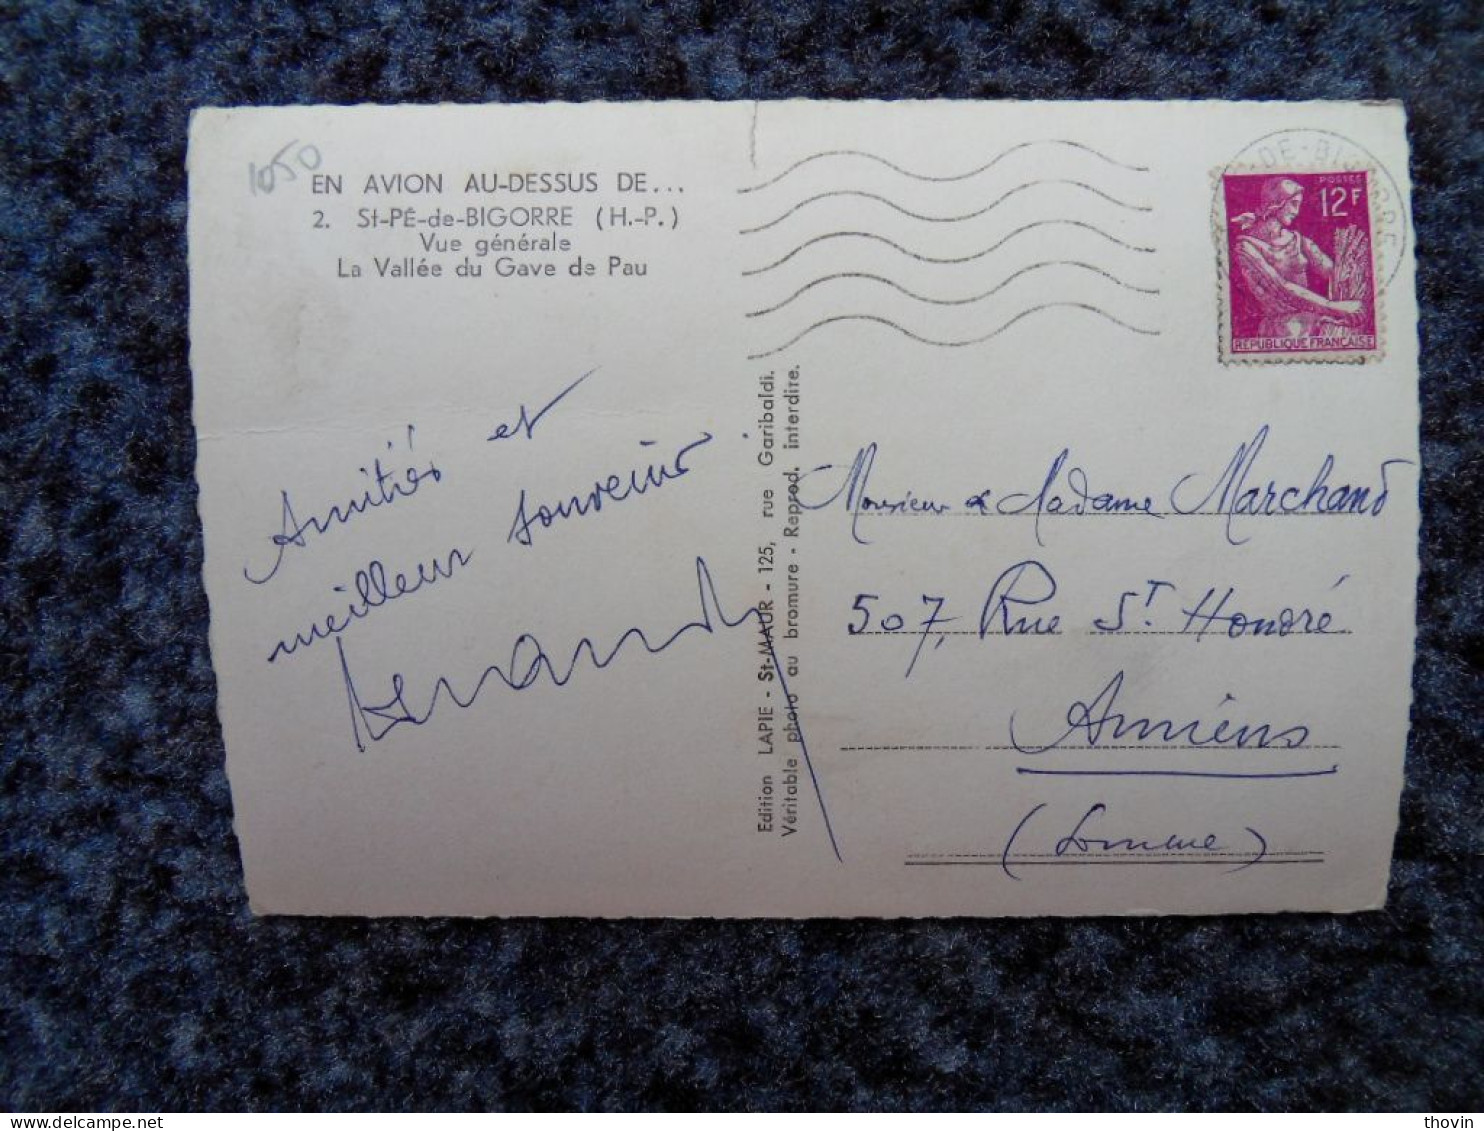 1050
EN AVION AU-DESSUS DE...
2. St-PÉ-de-BIGORRE (H.-P.)
Vue générale
La Vallée du Gave de Pau
Amitiés et
meilleur souvenir
Edition LAPIE - St-MAUR - 125, rue Garibaldi.
Véritable photo au bromure - Reprod. interdire.
DE-BIGORRE
POSTES
12F
REPUBLIQUE FRANCAISE
Monsieur & Madame Marchand
507, Rue St Honoré
Amiens
(Somme)
thovin